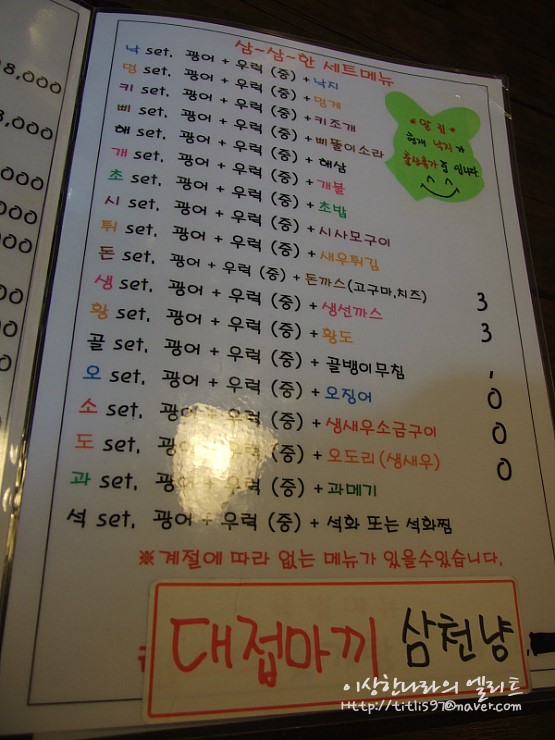 삼~삼~한 세트메뉴
낙 set. 광어 + 우럭 (중) + 낙지
멍 set. 광어 + 우럭 (중) + 멍게
키 set. 광어 + 우럭 (중) + 키조개
삐 set. 광어 + 우럭 (중) + 삐뚤이소라
해 set. 광어 + 우럭 (중) + 해삼
개 set. 광어 + 우럭 (중) + 개불
초 set. 광어 + 우럭 (중) + 초밥
시 set. 광어 + 우럭 (중) + 시사모구이
튀 set. 광어 + 우럭 (중) + 새우튀김
돈 set. 광어 + 우럭 (중) + 돈까스(고구마,치즈)
생 set. 광어 + 우럭 (중) + 생선까스
황 set. 광어 + 우럭 (중) + 황도
골 set. 광어 + 우럭 (중) + 골뱅이무침
오 set. 광어 + 우럭 (중) + 오징어
소 set. 광어 + 우럭 (중) + 생새우소금구이
도 set. 광어 + 우럭 (중) + 오도리(생새우)
과 set. 광어 + 우럭 (중) + 과메기
석 set. 광어 + 우럭 (중) + 석화 또는 석화찜
3
3
,
0
0
0
※계절에 따라 없는 메뉴가 있을수있습니다.
대접마끼 삼천냥
이상한나라의 엘리트
Http://titli597@naver.com